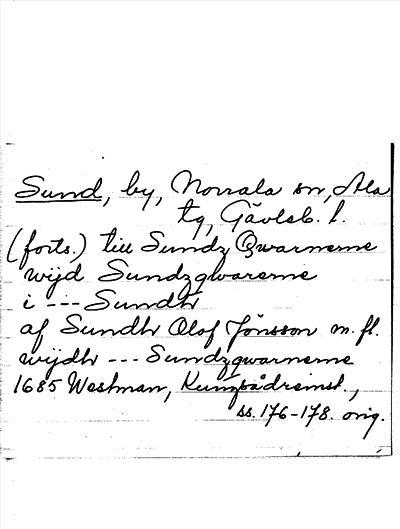 Sund, by, Norrala sn, Ala
tg, Gävleb. l.
(forts.) till Sundz Qwarnerne
wijd Sundzqwarerne
i --- Sundh
af Sundh Olof Jönsson m. fl.
wijdh --- Sundzqwarnerne
1685 Westman,
ss. 176-178. orig.